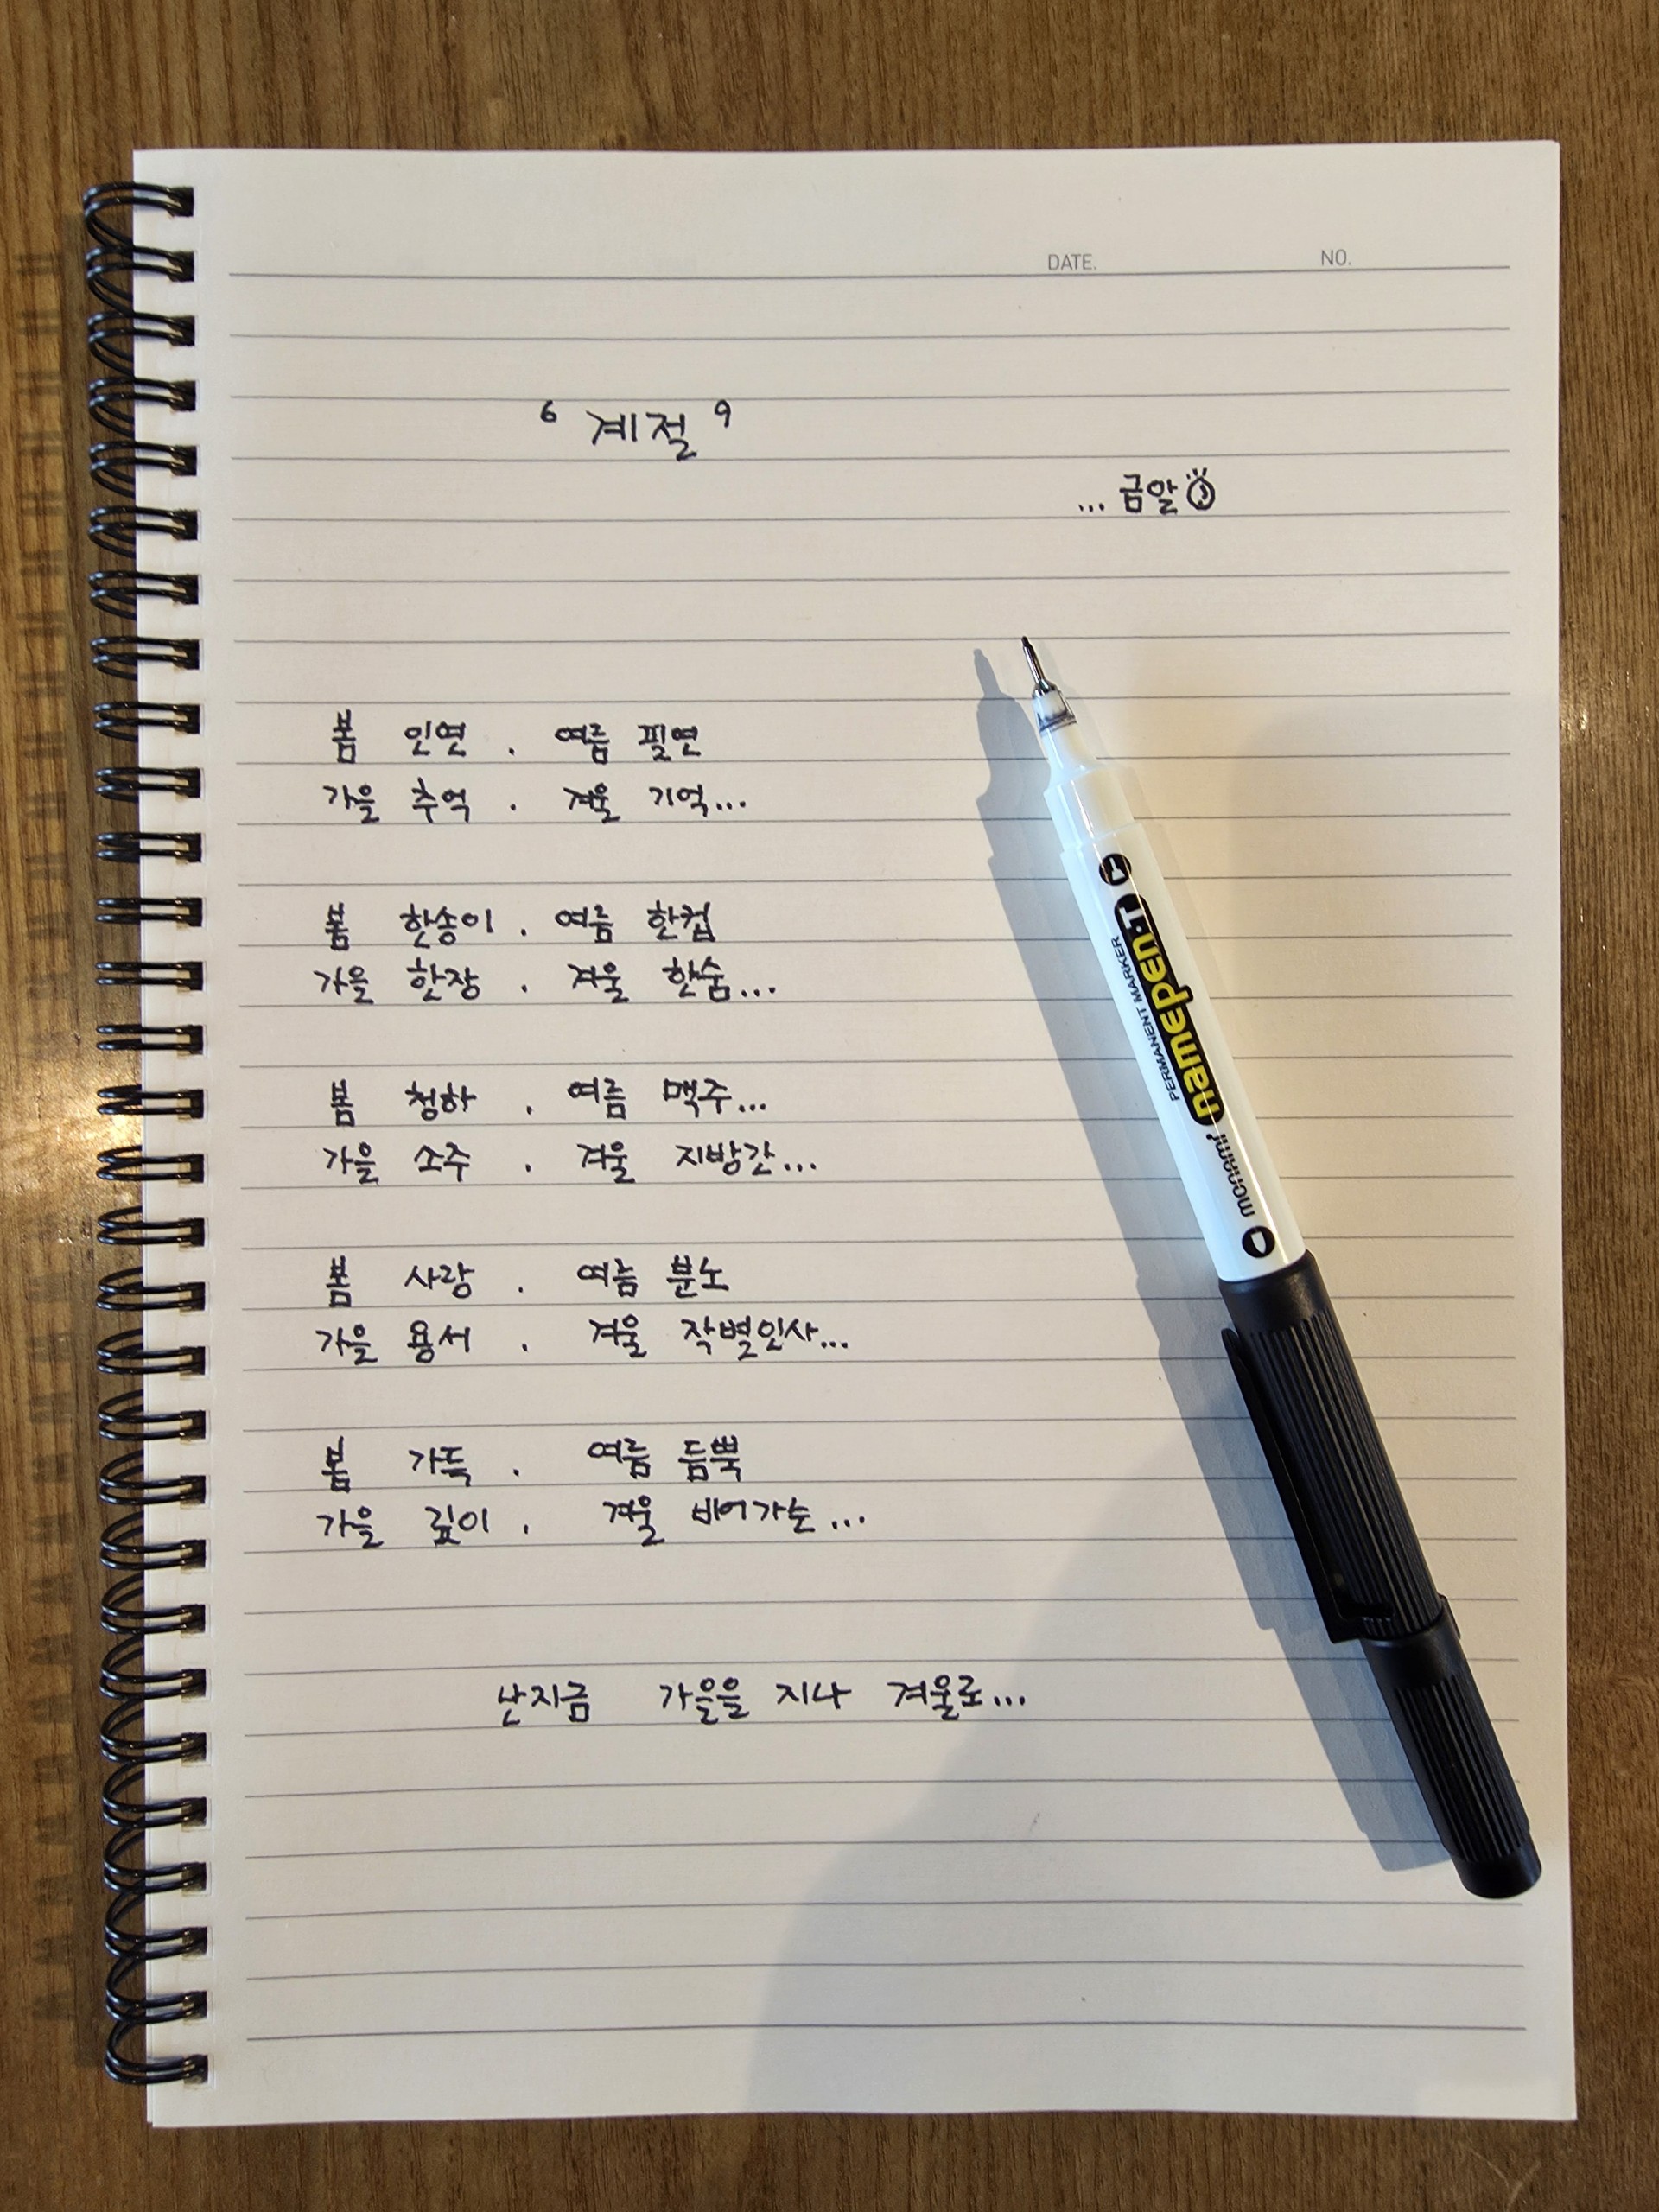 DATE. NO.
‘ 계절 ’
... 금알
봄 인연 . 여름 필연
가을 추억 . 겨울 기억...
봄 한송이 . 여름 한컵
가을 한장 . 겨울 한숨...
봄 청하 . 여름 맥주...
가을 소주 . 겨울 지방간...
봄 사랑 . 여름 분노
가을 용서 . 겨울 작별인사...
봄 가득 . 여름 듬뿍
가을 깊이 . 겨울 비어가는...
난지금 가을을 지나 겨울로...
monami namepen-T
PERMANENT MARKER